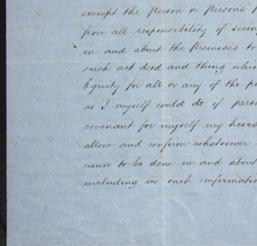 exempt the Person or Persons
from all responsibility of seeing
in and about the Premises to
such act deed and thing which
Equity for all or any of the
as I myself could do if
covenant for myself my heirs
allow and confirm whatsoever
cause to be done in and about
including in such confirmation